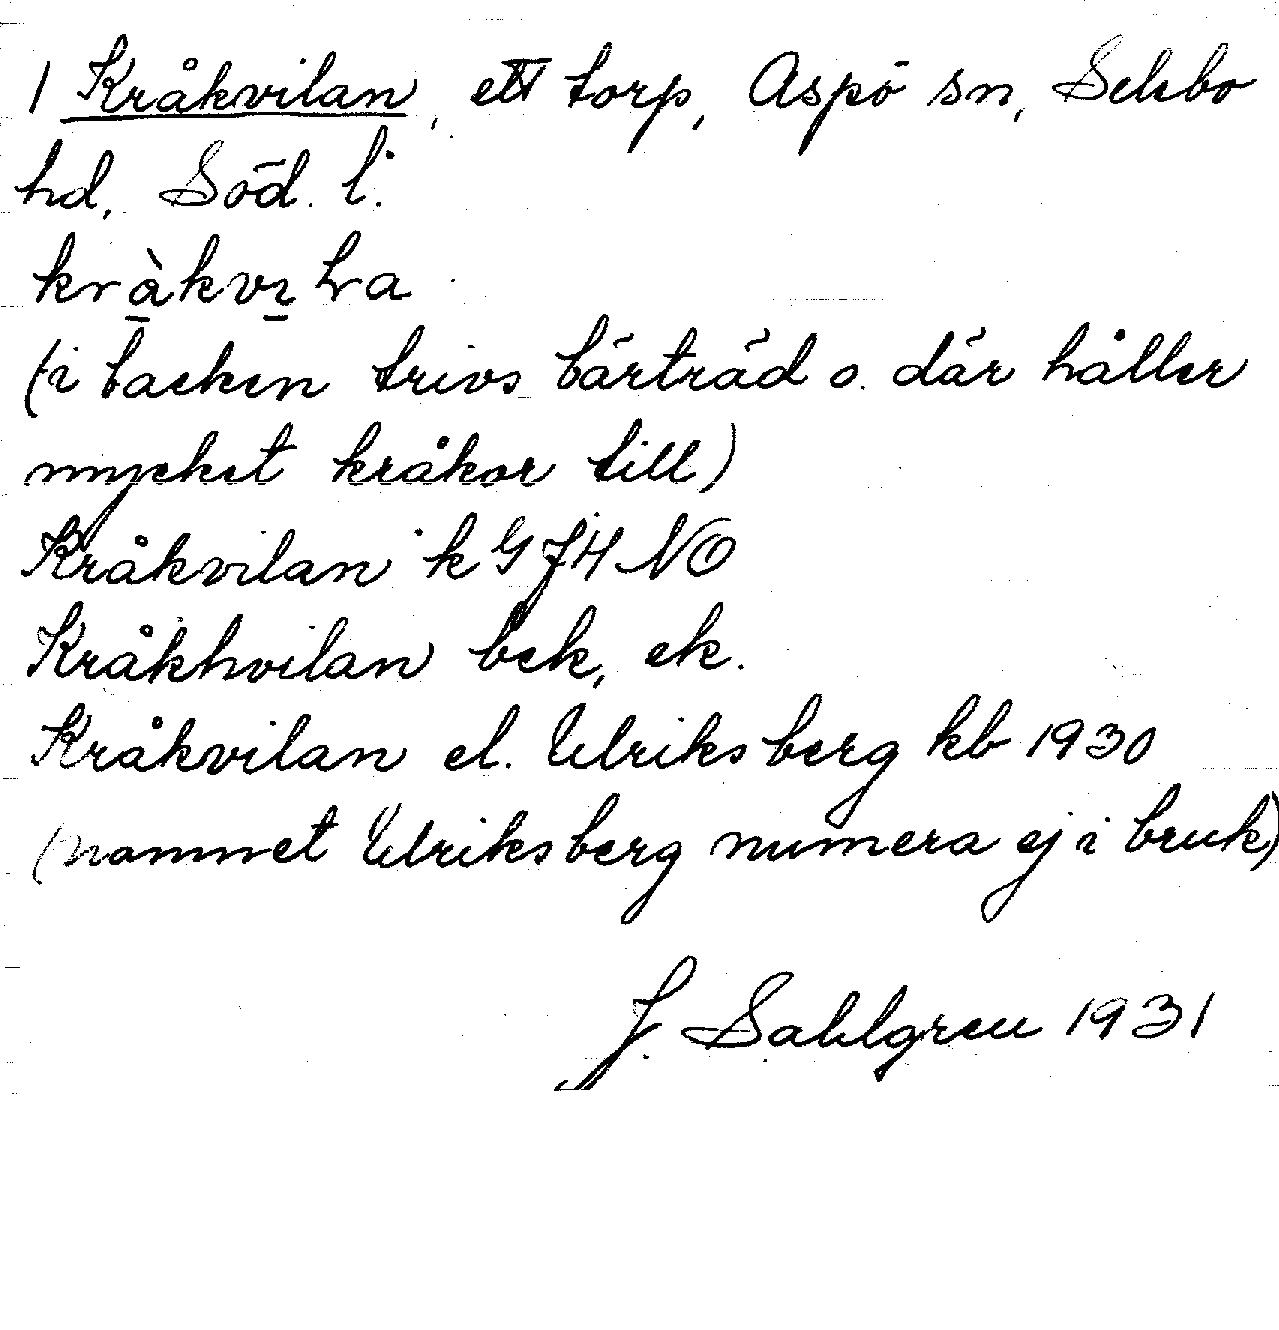 1 Kråkvilan, ett torp, Aspö sn, Selebo
hd, Söd. l.
kràkvɪlra
(i backen trivs bärträd o. där håller
mycket kråkor till)
Kråkvilan k GJHNO
Kråkhvilan bek, ek.
Kråkvilan el. Ulriksberg kb 1930
(namnet Ulriksberg numera ej i bruk)
J. Sahlgren 1931